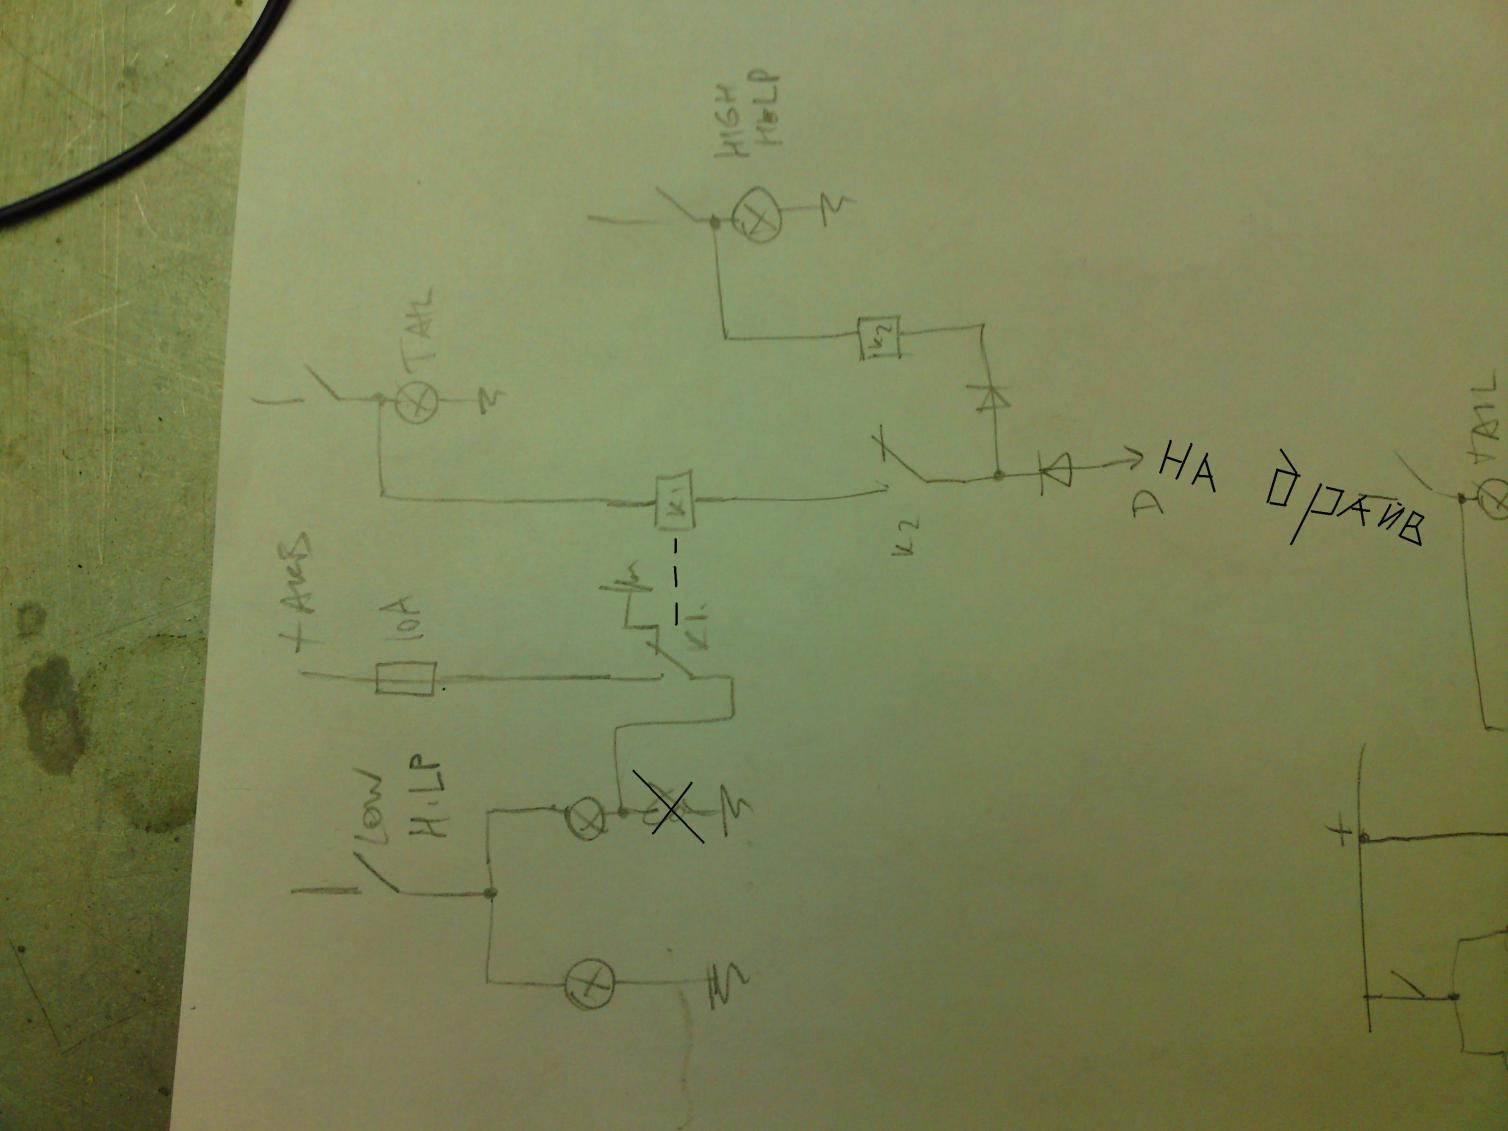 HIGH
HELP
TAIL
K2
НА ДРАЙВ
D
K2
K1
+ АКБ
10A
K1.
LOW
H.LP
TAIL
+